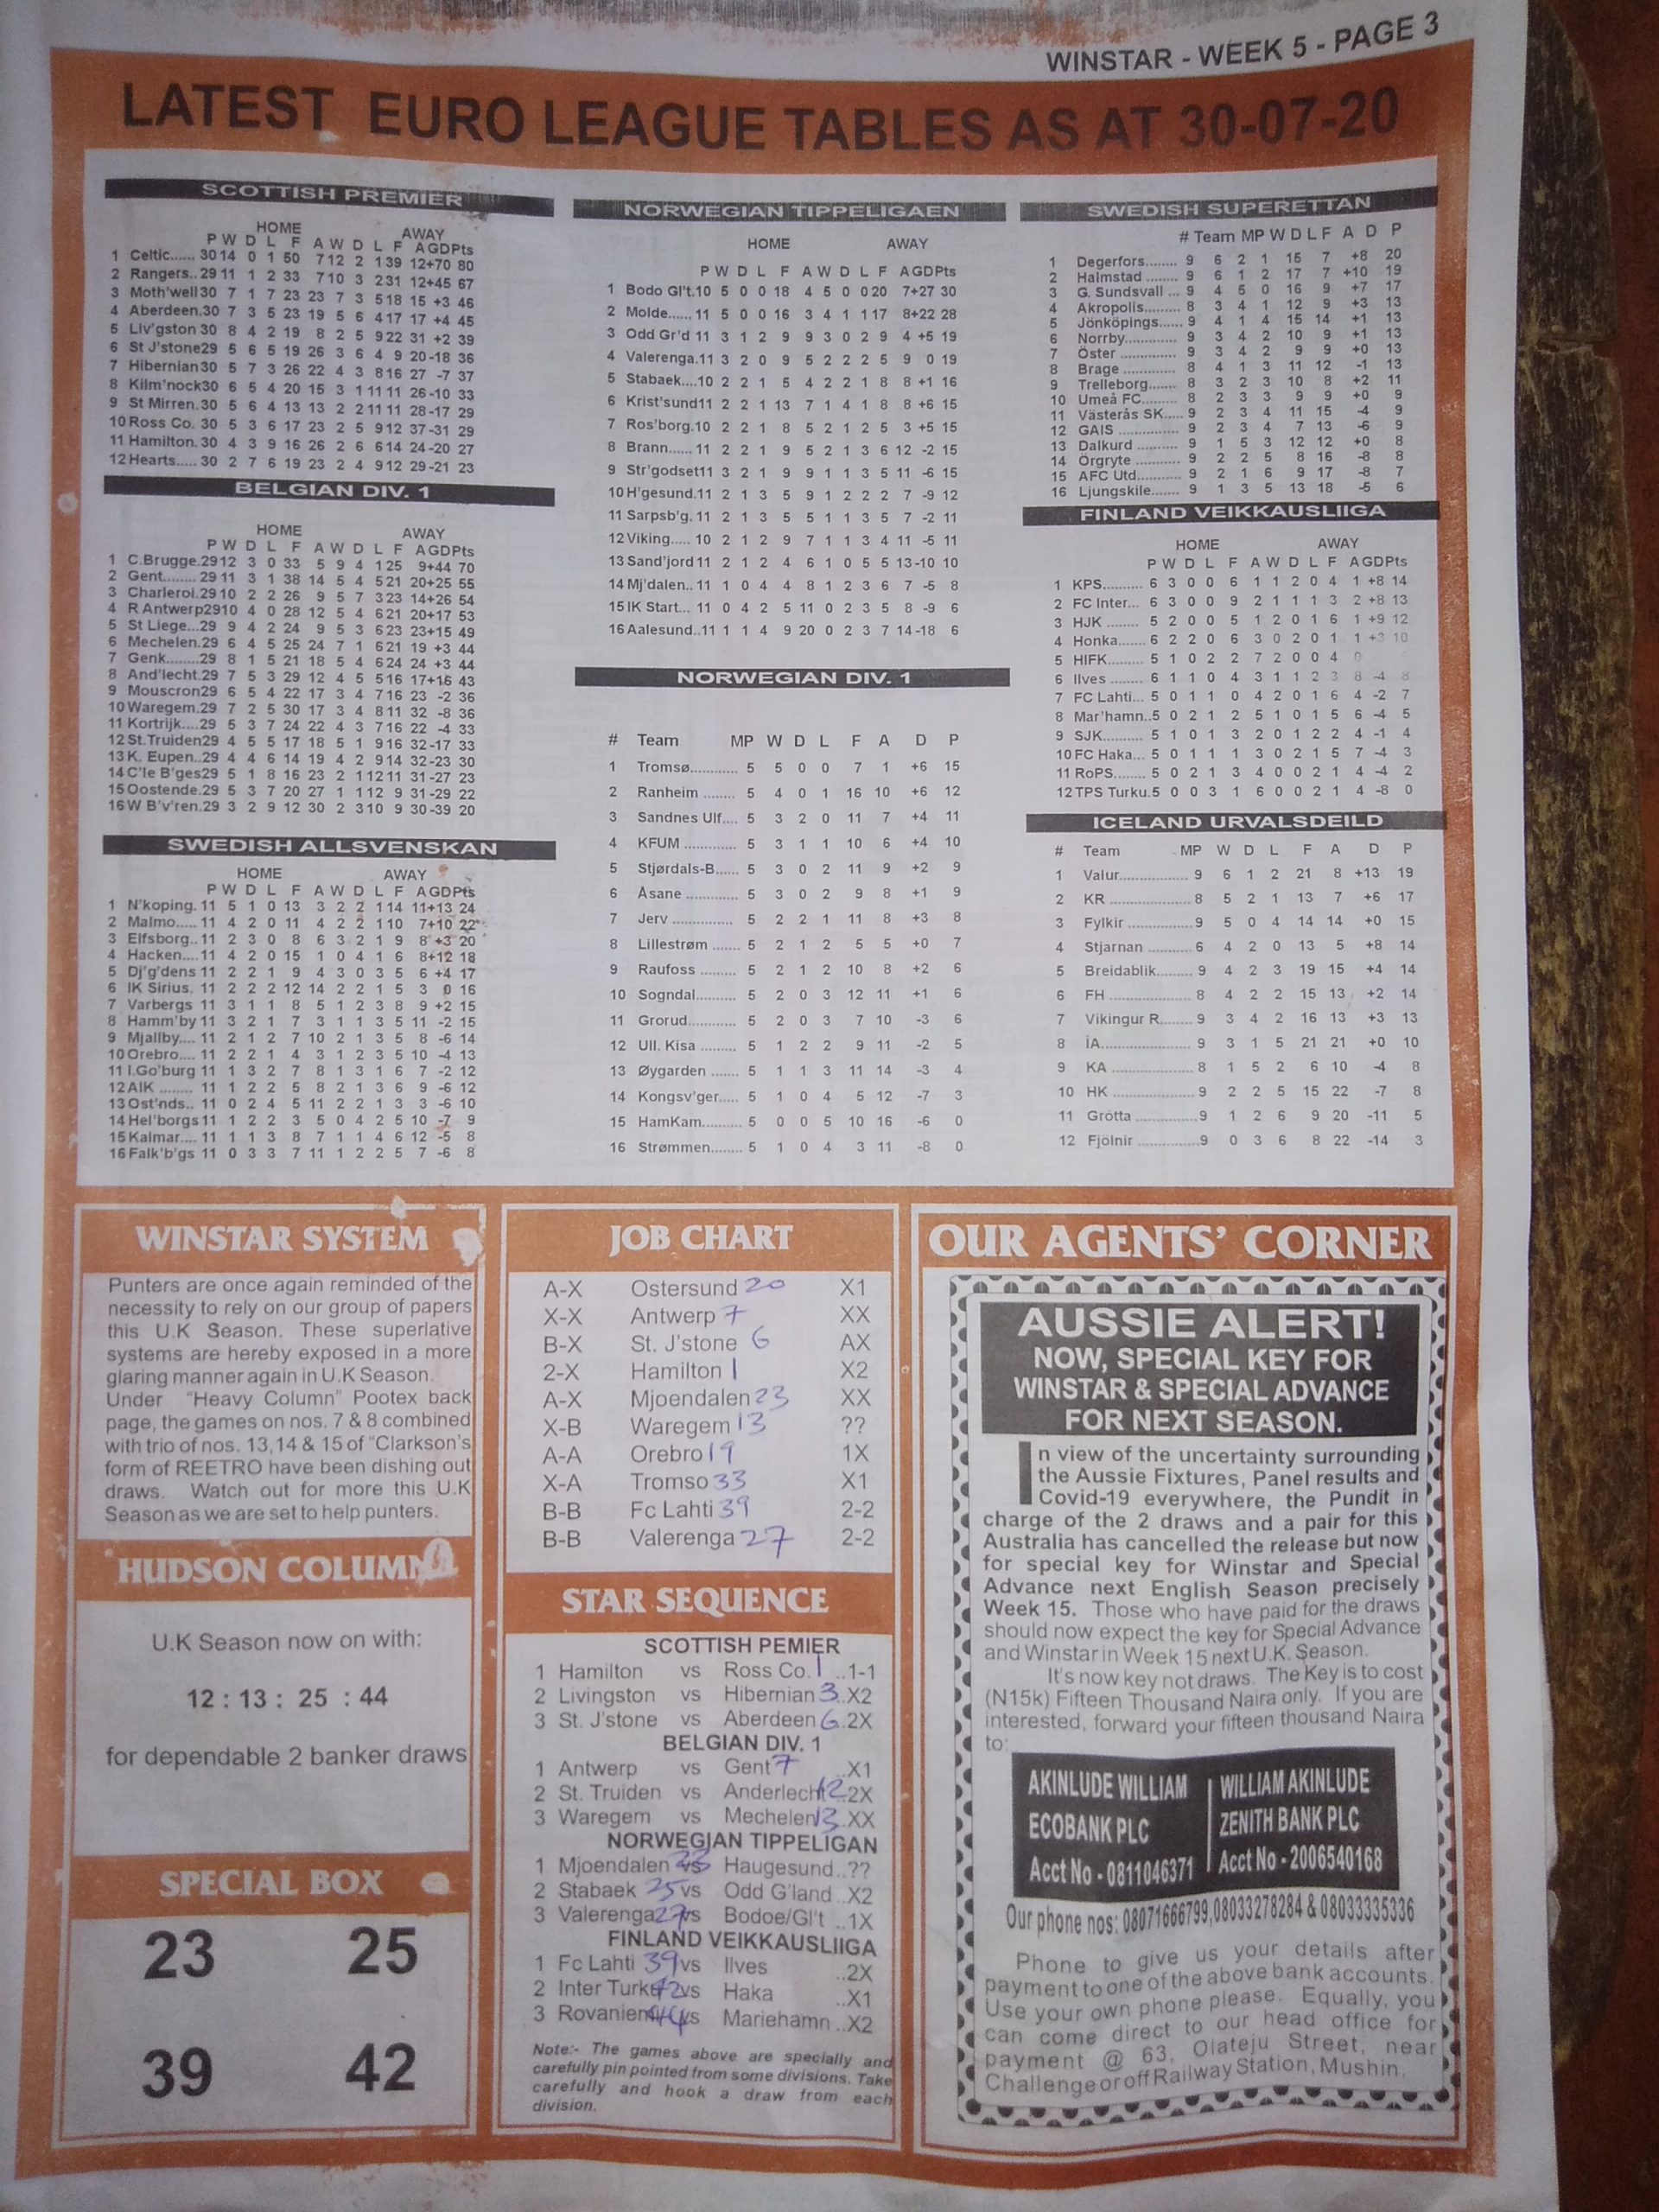 WINSTAR - WEEK 5 - PAGE 3
LATEST EURO LEAGUE TABLES AS AT 30-07-20
SCOTTISH PREMIER
HOME AWAY
P W D L F A W D L F A GD Pts
1 Celtic...... 30 14 0 1 50 7 12 2 1 39 12 +70 80
2 Rangers.. 29 11 1 2 33 7 10 3 2 31 12 +45 67
3 Moth'well 30 7 1 7 23 23 7 3 5 18 15 +3 46
4 Aberdeen. 30 7 3 5 23 19 5 6 4 17 17 +4 45
5 Liv'gston 30 8 4 2 19 8 2 5 9 22 31 +2 39
6 St J'stone 29 5 6 5 19 26 3 6 4 9 20 -18 36
7 Hibernian 30 5 7 3 26 22 4 3 8 16 27 -7 37
8 Kilm'nock 30 6 5 4 20 15 3 1 11 11 26 -10 33
9 St Mirren. 30 5 6 4 13 13 2 2 11 11 28 -17 29
10 Ross Co. 30 5 3 6 17 23 2 5 9 12 37 -31 29
11 Hamilton. 30 4 3 9 16 26 2 6 6 14 24 -20 27
12 Hearts..... 30 2 7 6 19 23 2 4 9 12 29 -21 23
BELGIAN DIV. 1
HOME AWAY
P W D L F A W D L F A GD Pts
1 C.Brugge. 29 12 3 0 33 5 9 4 1 25 9 +44 70
2 Gent........ 29 11 3 1 38 14 5 4 5 21 20 +25 55
3 Charleroi. 29 10 2 2 26 9 5 7 3 23 14 +26 54
4 R Antwerp 29 10 4 0 28 12 5 4 6 21 20 +17 53
5 St Liege... 29 9 4 2 24 9 5 3 6 23 23 +15 49
6 Mechelen. 29 6 4 5 25 24 7 1 6 21 19 +3 44
7 Genk........ 29 8 1 5 21 18 5 4 6 24 24 +3 44
8 And'lecht. 29 7 5 3 29 12 4 5 5 16 17 +16 43
9 Mouscron 29 6 5 4 22 17 3 4 7 16 23 -2 36
10 Waregem. 29 7 2 5 30 17 3 4 8 11 32 -8 36
11 Kortrijk.... 29 5 3 7 24 22 4 3 7 16 22 -4 33
12 St.Truiden 29 4 5 5 17 18 5 1 9 16 32 -17 33
13 K. Eupen.. 29 4 4 6 14 19 4 2 9 14 32 -23 30
14 C'le B'ges 29 5 1 8 16 23 2 1 12 11 31 -27 23
15 Oostende. 29 5 3 7 20 27 1 1 12 9 31 -29 22
16 W B'v'ren. 29 3 2 9 12 30 2 3 10 9 30 -39 20
SWEDISH ALLSVENSKAN
HOME AWAY
P W D L F A W D L F A GD Pts
1 N'koping. 11 5 1 0 13 3 2 2 1 14 11 +13 24
2 Malmo..... 11 4 2 0 11 4 2 2 1 10 7 +10 22
3 Elfsborg.. 11 2 3 0 8 6 3 2 1 9 8 +3 20
4 Hacken.... 11 4 2 0 15 1 0 4 1 6 8 +12 18
5 Dj'g'dens 11 2 2 1 9 4 3 0 3 5 6 +4 17
6 IK Sirius. 11 2 2 2 12 14 2 2 1 5 3 0 16
7 Varbergs 11 3 1 1 8 5 1 2 3 8 9 +2 15
8 Hamm'by 11 3 2 1 7 3 1 1 3 5 11 -2 15
9 Mjallby.... 11 2 1 2 7 10 2 1 3 5 8 -6 14
10 Orebro.... 11 2 2 1 4 3 1 2 3 5 10 -4 13
11 I.Go'burg 11 1 3 2 7 8 1 3 1 6 7 -2 12
12 AIK ........ 11 1 2 2 5 8 2 1 3 6 9 -6 12
13 Ost'nds.. 11 0 2 4 5 11 2 2 1 3 3 -6 10
14 Hel'borgs 11 1 2 2 3 5 0 4 2 5 10 -7 9
15 Kalmar.... 11 1 1 3 8 7 1 1 4 6 12 -5 8
16 Falk'b'gs 11 0 3 3 7 11 1 2 2 5 7 -6 8
NORWEGIAN TIPPELIGAEN
HOME AWAY
P W D L F A W D L F A GD Pts
1 Bodo Gl't. 10 5 0 0 18 4 5 0 0 20 7 +27 30
2 Molde...... 11 5 0 0 16 3 4 1 1 17 8 +22 28
3 Odd Gr'd 11 3 1 2 9 9 3 0 2 9 4 +5 19
4 Valerenga. 11 3 2 0 9 5 2 2 2 5 9 0 19
5 Stabaek.... 10 2 2 1 5 4 2 2 1 8 8 +1 16
6 Krist'sund 11 2 2 1 13 7 1 4 1 8 8 +6 15
7 Ros'borg. 10 2 2 1 8 5 2 1 2 5 3 +5 15
8 Brann...... 11 2 2 1 9 5 2 1 3 6 12 -2 15
9 Str'godset 11 3 2 1 9 9 1 1 3 5 11 -6 15
10 H'gesund. 11 2 1 3 5 9 1 2 2 2 7 -9 12
11 Sarpsb'g. 11 2 1 3 5 5 1 1 3 5 7 -2 11
12 Viking..... 10 2 1 2 9 7 1 1 3 4 11 -5 11
13 Sand'jord 11 2 1 2 4 6 1 0 5 5 13 -10 10
14 Mj'dalen.. 11 1 0 4 4 8 1 2 3 6 7 -5 8
15 IK Start... 11 0 4 2 5 11 0 2 3 5 8 -9 6
16 Aalesund.. 11 1 1 4 9 20 0 2 3 7 14 -18 6
NORWEGIAN DIV. 1
# Team MP W D L F A D P
1 Tromsø............ 5 5 0 0 7 1 +6 15
2 Ranheim ........ 5 4 0 1 16 10 +6 12
3 Sandnes Ulf.... 5 3 2 0 11 7 +4 11
4 KFUM ............. 5 3 1 1 10 6 +4 10
5 Stjørdals-B...... 5 3 0 2 11 9 +2 9
6 Åsane ............. 5 3 0 2 9 8 +1 9
7 Jerv ............... 5 2 2 1 11 8 +3 8
8 Lillestrøm ....... 5 2 1 2 5 5 +0 7
9 Raufoss ......... 5 2 1 2 10 8 +2 6
10 Sogndal.......... 5 2 0 3 12 11 +1 6
11 Grorud............ 5 2 0 3 7 10 -3 6
12 Ull. Kisa ......... 5 1 2 2 9 11 -2 5
13 Øygarden ....... 5 1 1 3 11 14 -3 4
14 Kongsv'ger..... 5 1 0 4 5 12 -7 3
15 HamKam......... 5 0 0 5 10 16 -6 0
16 Strømmen........ 5 1 0 4 3 11 -8 0
SWEDISH SUPERETTAN
# Team MP W D L F A D P
1 Degerfors........ 9 6 2 1 15 7 +8 20
2 Halmstad ........ 9 6 1 2 17 7 +10 19
3 G. Sundsvall ... 9 4 5 0 16 9 +7 17
4 Akropolis......... 8 3 4 1 12 9 +3 13
5 Jönköpings...... 9 4 1 4 15 14 +1 13
6 Norrby............. 9 3 4 2 10 9 +1 13
7 Öster .............. 9 3 4 2 9 9 +0 13
8 Brage ............. 8 4 1 3 11 12 -1 13
9 Trelleborg....... 8 3 2 3 10 8 +2 11
10 Umeå FC........ 8 2 3 3 9 9 +0 9
11 Västerås SK..... 9 2 3 4 11 15 -4 9
12 GAIS .............. 9 2 3 4 7 13 -6 9
13 Dalkurd .......... 9 1 5 3 12 12 +0 8
14 Örgryte ........... 9 2 2 5 8 16 -8 8
15 AFC Utd........... 9 2 1 6 9 17 -8 7
16 Ljungskile....... 9 1 3 5 13 18 -5 6
FINLAND VEIKKAUSLIIGA
HOME AWAY
P W D L F A W D L F A GD Pts
1 KPS.......... 6 3 0 0 6 1 1 2 0 4 1 +8 14
2 FC Inter... 6 3 0 0 9 2 1 1 1 3 2 +8 13
3 HJK ........ 5 2 0 0 5 1 2 0 1 6 1 +9 12
4 Honka...... 6 2 2 0 6 3 0 2 0 1 1 +3 10
5 HIFK......... 5 1 0 2 2 7 2 0 0 4 0
6 Ilves ........ 6 1 1 0 4 3 1 1 2 3 8 -4 8
7 FC Lahti... 5 0 1 1 0 4 2 0 1 6 4 -2 7
8 Mar'hamn.. 5 0 2 1 2 5 1 0 1 5 6 -4 5
9 SJK......... 5 1 0 1 3 2 0 1 2 2 4 -1 4
10 FC Haka... 5 0 1 1 1 3 0 2 1 5 7 -4 3
11 RoPS........ 5 0 2 1 3 4 0 0 2 1 4 -4 2
12 TPS Turku. 5 0 0 3 1 6 0 0 2 1 4 -8 0
ICELAND URVALSDEILD
# Team MP W D L F A D P
1 Valur............. 9 6 1 2 21 8 +13 19
2 KR ................ 8 5 2 1 13 7 +6 17
3 Fylkir ............ 9 5 0 4 14 14 +0 15
4 Stjarnan ........ 6 4 2 0 13 5 +8 14
5 Breidablik....... 9 4 2 3 19 15 +4 14
6 FH ................ 8 4 2 2 15 13 +2 14
7 Vikingur R....... 9 3 4 2 16 13 +3 13
8 ÍA................. 9 3 1 5 21 21 +0 10
9 KA ................ 8 1 5 2 6 10 -4 8
10 HK ................ 9 2 2 5 15 22 -7 8
11 Grótta ............ 9 1 2 6 9 20 -11 5
12 Fjölnir ............ 9 0 3 6 8 22 -14 3
WINSTAR SYSTEM
Punters are once again reminded of the
necessity to rely on our group of papers
this U.K Season. These superlative
systems are hereby exposed in a more
glaring manner again in U.K Season.
Under "Heavy Column" Pootex back
page, the games on nos. 7 & 8 combined
with trio of nos. 13,14 & 15 of "Clarkson's
form of REETRO have been dishing out
draws. Watch out for more this U.K
Season as we are set to help punters.
HUDSON COLUMN
U.K Season now on with:
12 : 13 : 25 : 44
for dependable 2 banker draws
SPECIAL BOX
23 25
39 42
JOB CHART
A-X Ostersund 20 X1
X-X Antwerp 7 XX
B-X St. J'stone 6 AX
2-X Hamilton 1 X2
A-X Mjoendalen 23 XX
X-B Waregem 13 ??
A-A Orebro 19 1X
X-A Tromso 33 X1
B-B Fc Lahti 39 2-2
B-B Valerenga 27 2-2
STAR SEQUENCE
SCOTTISH PEMIER
1 Hamilton vs Ross Co. 1 ..1-1
2 Livingston vs Hibernian 3 ..X2
3 St. J'stone vs Aberdeen 6 .2X
BELGIAN DIV. 1
1 Antwerp vs Gent 7 ..X1
2 St. Truiden vs Anderlecht 12 ..2X
3 Waregem vs Mechelen 13 .XX
NORWEGIAN TIPPELIGAN
1 Mjoendalen 23 vs Haugesund..??
2 Stabaek 25 vs Odd G'land ..X2
3 Valerenga 27 vs Bodoe/Gl't ..1X
FINLAND VEIKKAUSLIIGA
1 Fc Lahti 39 vs Ilves ..2X
2 Inter Turku 42 vs Haka ..X1
3 Rovaniemi 44 vs Mariehamn ..X2
Note:- The games above are specially and
carefully pin pointed from some divisions. Take
carefully and hook a draw from each
division.
OUR AGENTS' CORNER
AUSSIE ALERT!
NOW, SPECIAL KEY FOR
WINSTAR & SPECIAL ADVANCE
FOR NEXT SEASON.
In view of the uncertainty surrounding
the Aussie Fixtures, Panel results and
Covid-19 everywhere, the Pundit in
charge of the 2 draws and a pair for this
Australia has cancelled the release but now
for special key for Winstar and Special
Advance next English Season precisely
Week 15. Those who have paid for the draws
should now expect the key for Special Advance
and Winstar in Week 15 next U.K. Season.
It's now key not draws. The Key is to cost
(N15k) Fifteen Thousand Naira only. If you are
interested, forward your fifteen thousand Naira
to:
AKINLUDE WILLIAM WILLIAM AKINLUDE
ECOBANK PLC ZENITH BANK PLC
Acct No - 0811046371 Acct No - 2006540168
Our phone nos: 08071666799,08033278284 & 08033335336
Phone to give us your details after
payment to one of the above bank accounts.
Use your own phone please. Equally, you
can come direct to our head office for
payment @ 63, Olateju Street, near
Challenge or off Railway Station, Mushin.